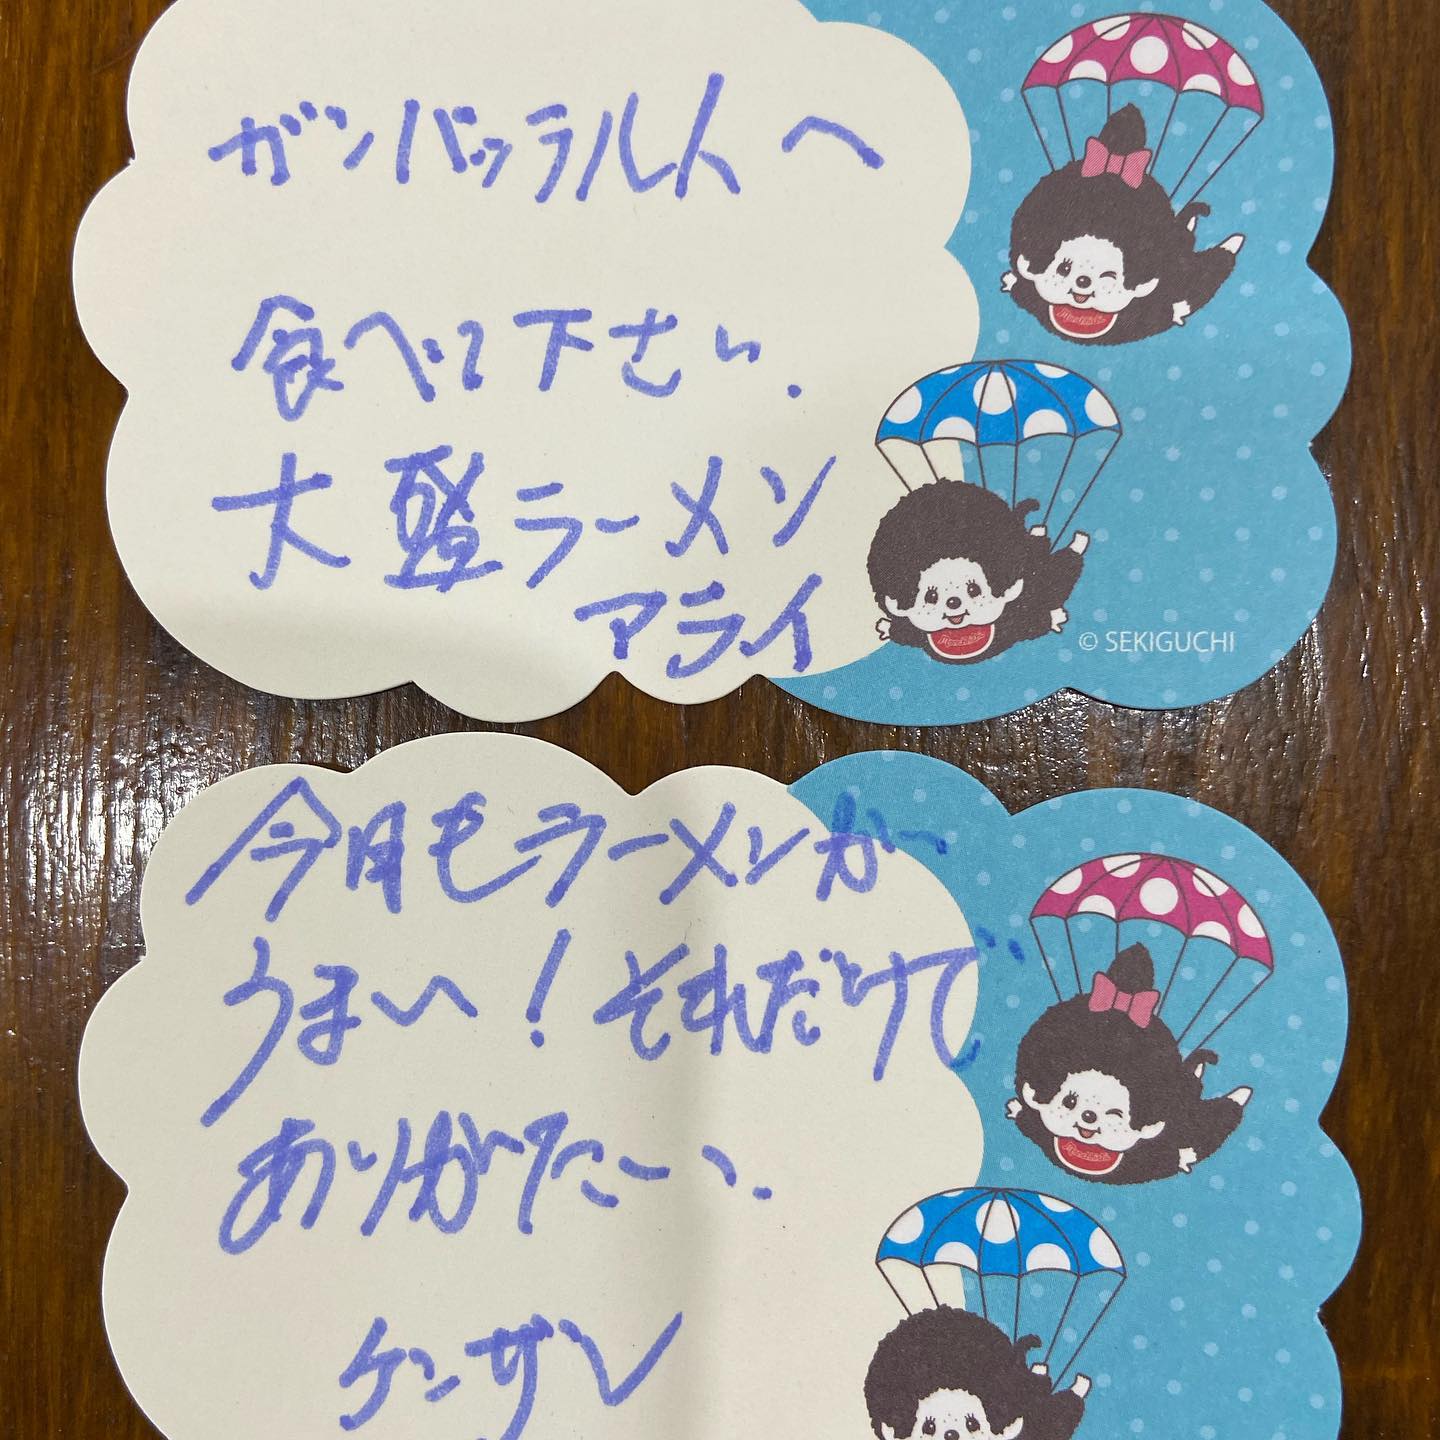 ガンバッラル人へ
食べて下さい.
大盛ラーメン
アライ
© SEKIGUCHI
今月もラーメンが
うまい！それだけで
ありがたーい.
ケンザン